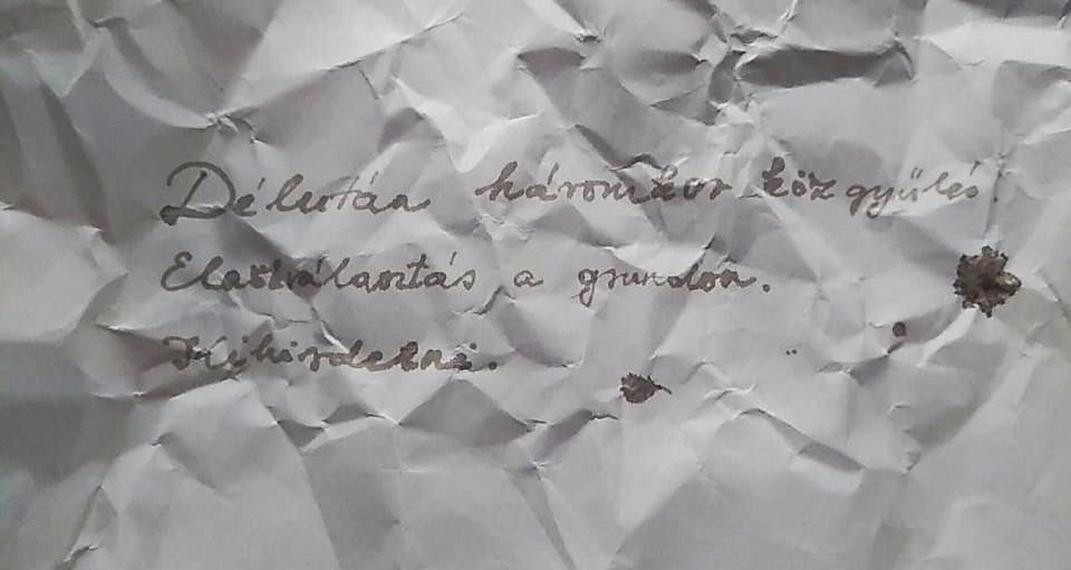 Délután háromkor közgyűlés.
Elnökválasztás a grundon.
Kihirdetni.